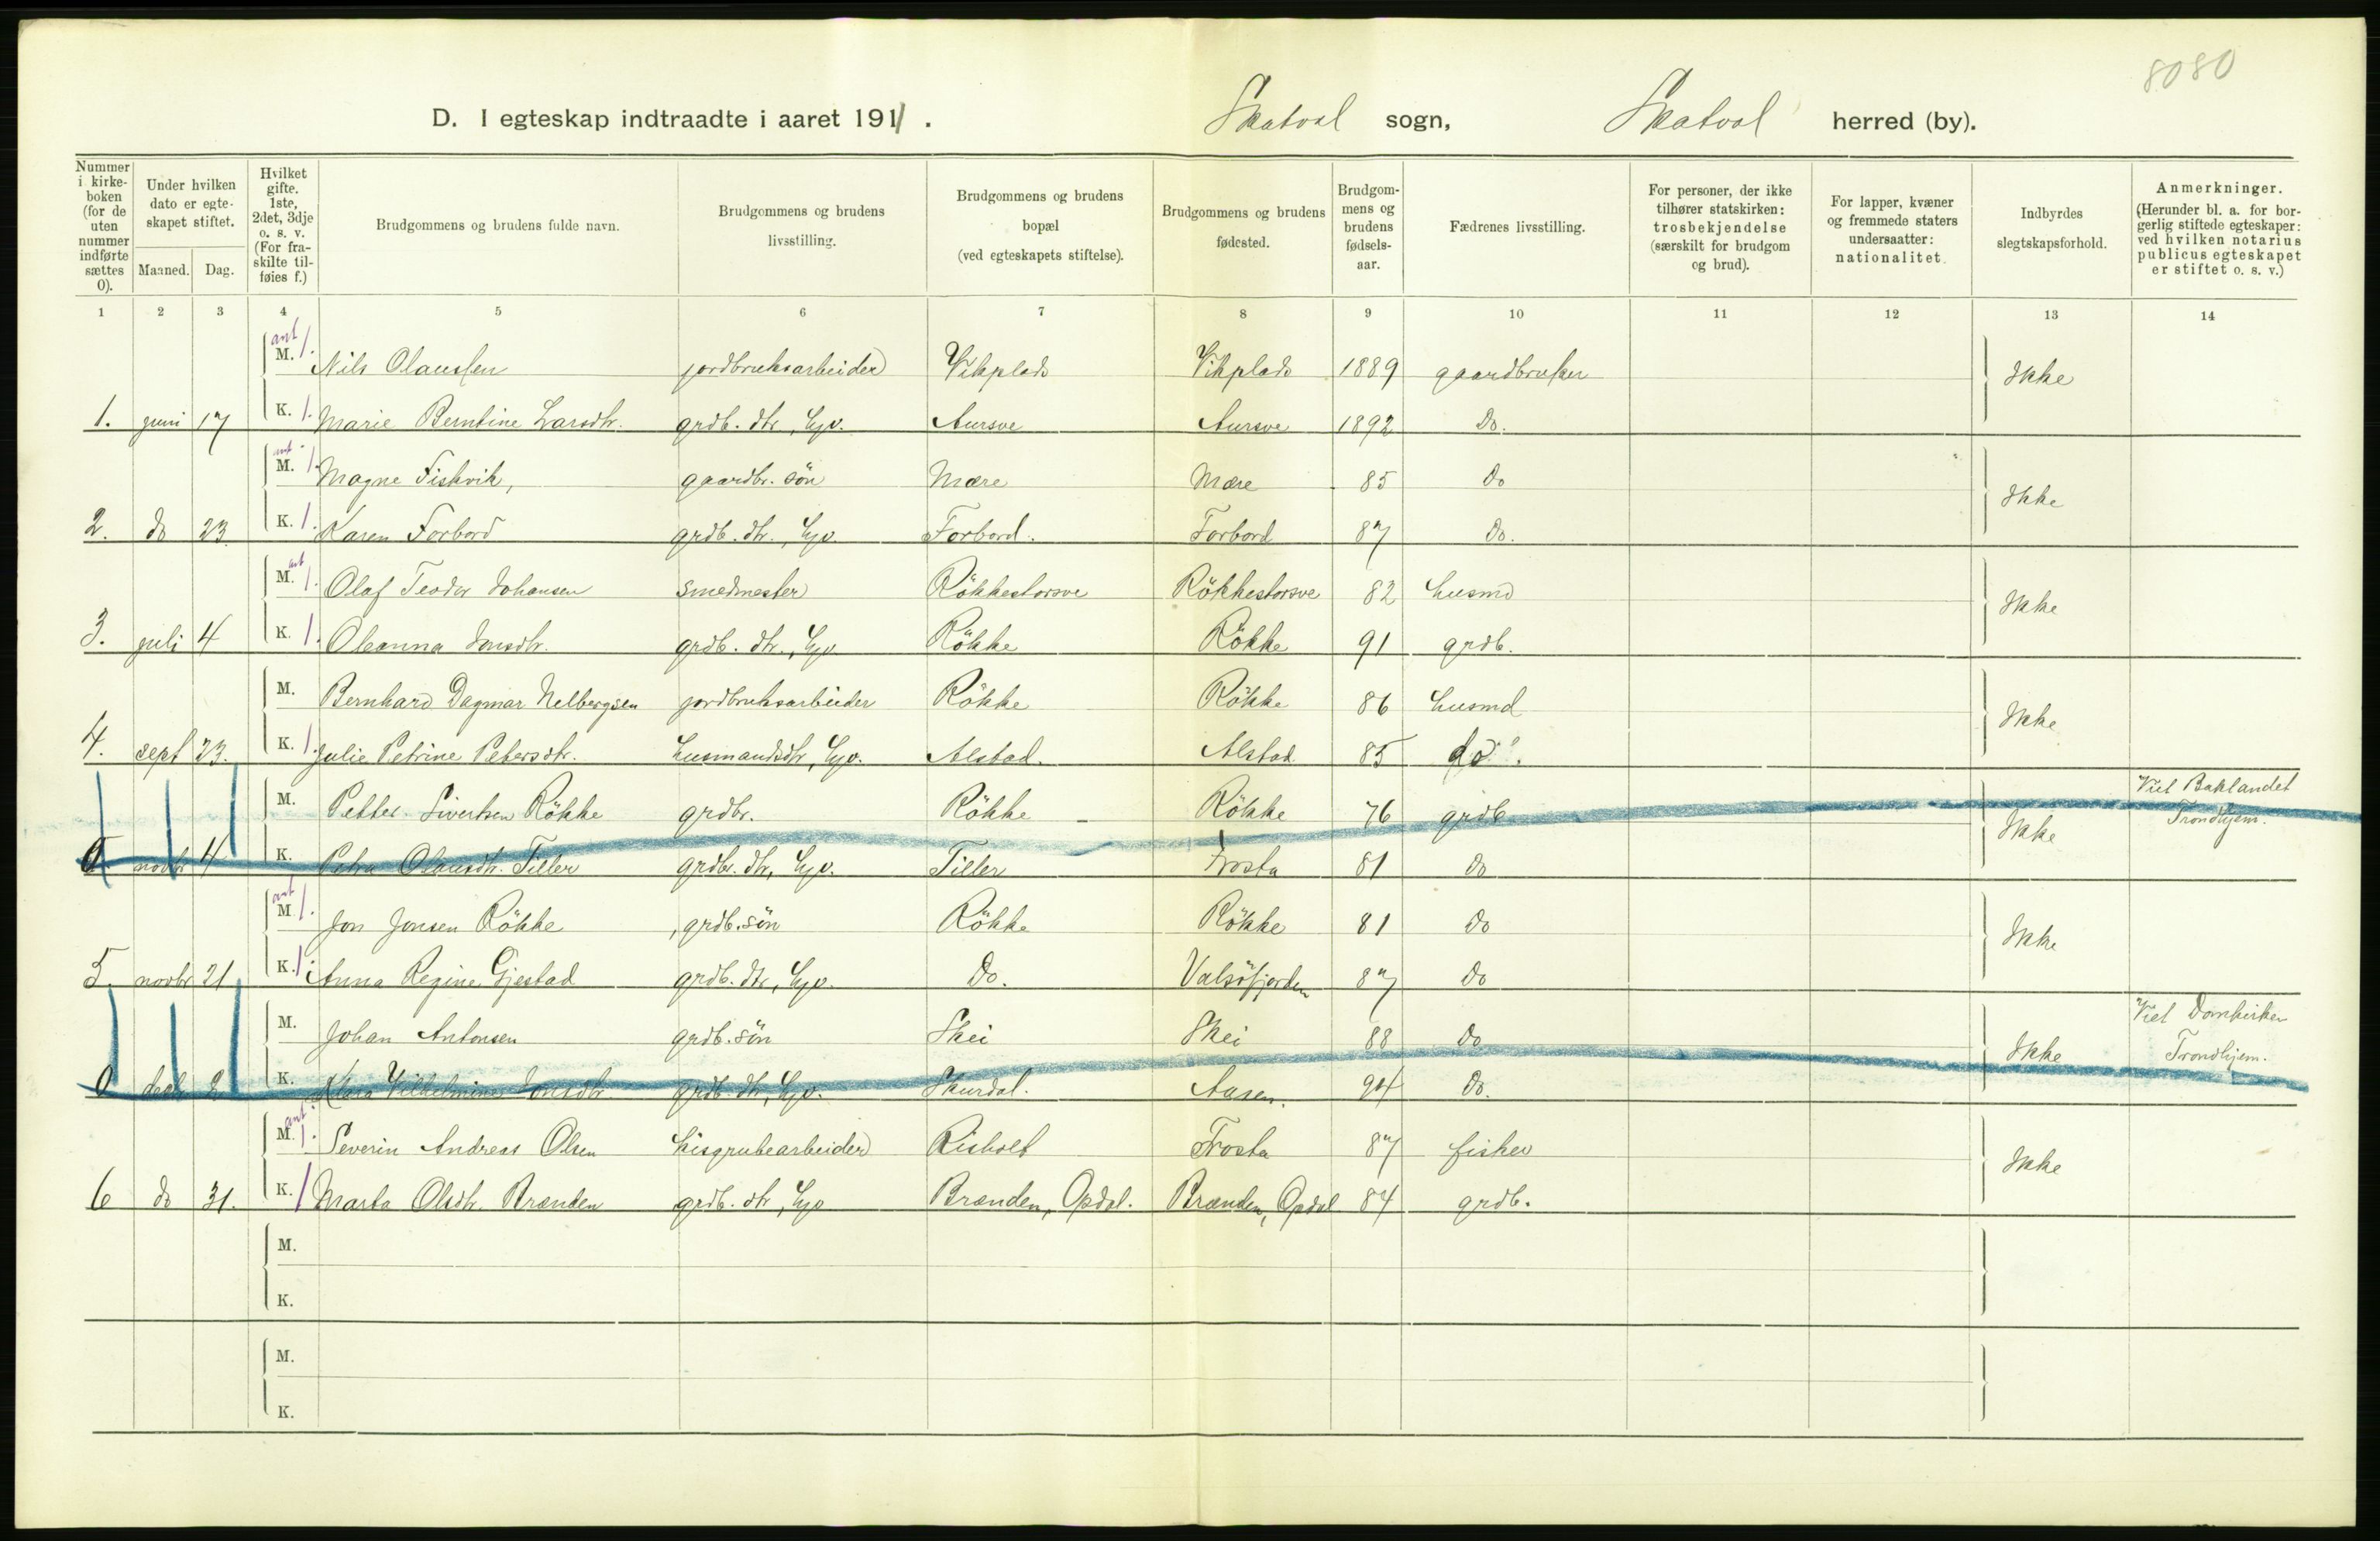 8080
D. I egteskap indtraadte i aaret 1911. Skatval sogn, Skatval herred (by).
Nummer i kirkeboken (for de uten nummer indførte sættes 0). | Under hvilken dato er egteskapet stiftet. Maaned. Dag. | Hvilket gifte. 1ste, 2det, 3dje o. s. v. (For fraskilte tilføies f.) | Brudgommens og brudens fulde navn. | Brudgommens og brudens livsstilling. | Brudgommens og brudens bopæl (ved egteskapets stiftelse). | Brudgommens og brudens fødested. | Brudgommens og brudens fødselsaar. | Fædrenes livsstilling. | For personer, der ikke tilhører statskirken: trosbekjendelse (særskilt for brudgom og brud). | For lapper, kvæner og fremmede staters undersaatter: nationalitet. | Indbyrdes slegtskapsforhold. | Anmerkninger. (Herunder bl. a. for borgerlig stiftede egteskaper: ved hvilken notarius publicus egteskapet er stiftet o. s. v.)
1 2 3 4 5 6 7 8 9 10 11 12 13 14
ant M. 1. Nils Olaussen jordbruksarbeider Vikplads Vikplads 1889 gaardbruker Ikke
1. juni 17 K. 1. Marie Berntine Larsdtr. grdb. dtr, hjv. Aursve Aursve 1892 Do.
ant M. 1. Magne Fiskvik, gaardbr. søn Mære Mære 85 Do Ikke
2. do 23 K. 1. Karen Forbord grdb. dtr., hjv. Forbord. Forbord 87 Do.
ant M. 1. Olaf Teodor Johansen smedmester Rökkestorsve Rökkestorsve 82 husmd Ikke
3. juli 4 K. 1. Oleanna Jonsdtr. grdb. dtr., hjv Rökke Rökke 91 grdb.
M. Bernhard Dagmar Nelbergsen jordbruksarbeider Rökke Rökke 86 husmd Ikke
4. sept 23. K. 1. Julie Petrine Petersdtr. husmandsdtr, hjv. Alstad. Alstad 85 do.
M. Petter Sivertsen Rökke grdbr. Rökke Rökke 76 grdb Ikke Viet Baklandet Trondhjem.
0 novbr 4 K. Petra Olausdtr. Tiller grdbr. dtr, hjv. Tiller Frosta 81 Do
ant M. 1. Jon Jonsen Rökke grdb. søn Rökke Rökke 81 Do Ikke
5. novbr 21 K. 1. Anna Regine Gjestad grdb. dtr, hjv. Do. Valsöfjorden 87 Do
M. Johan Antonsen grdb. søn Skei Skei 88 Do Ikke Viet Domkirken Trondhjem.
0 decbr 2 K. Klara Vilhelmine Jonsdtr grdb. dtr, hjv. Skurdal. Aasen. 94 Do.
ant M. 1. Severin Andreas Olsen kisgrubearbeider Risholt Frosta 87 fisker Ikke
6 do 31. K. 1 Marta Olsdtr. Brænden grdb. dtr, hjv Brænden, Opdal. Brænden, Opdal 84 grdb.
M.
K.
M.
K.